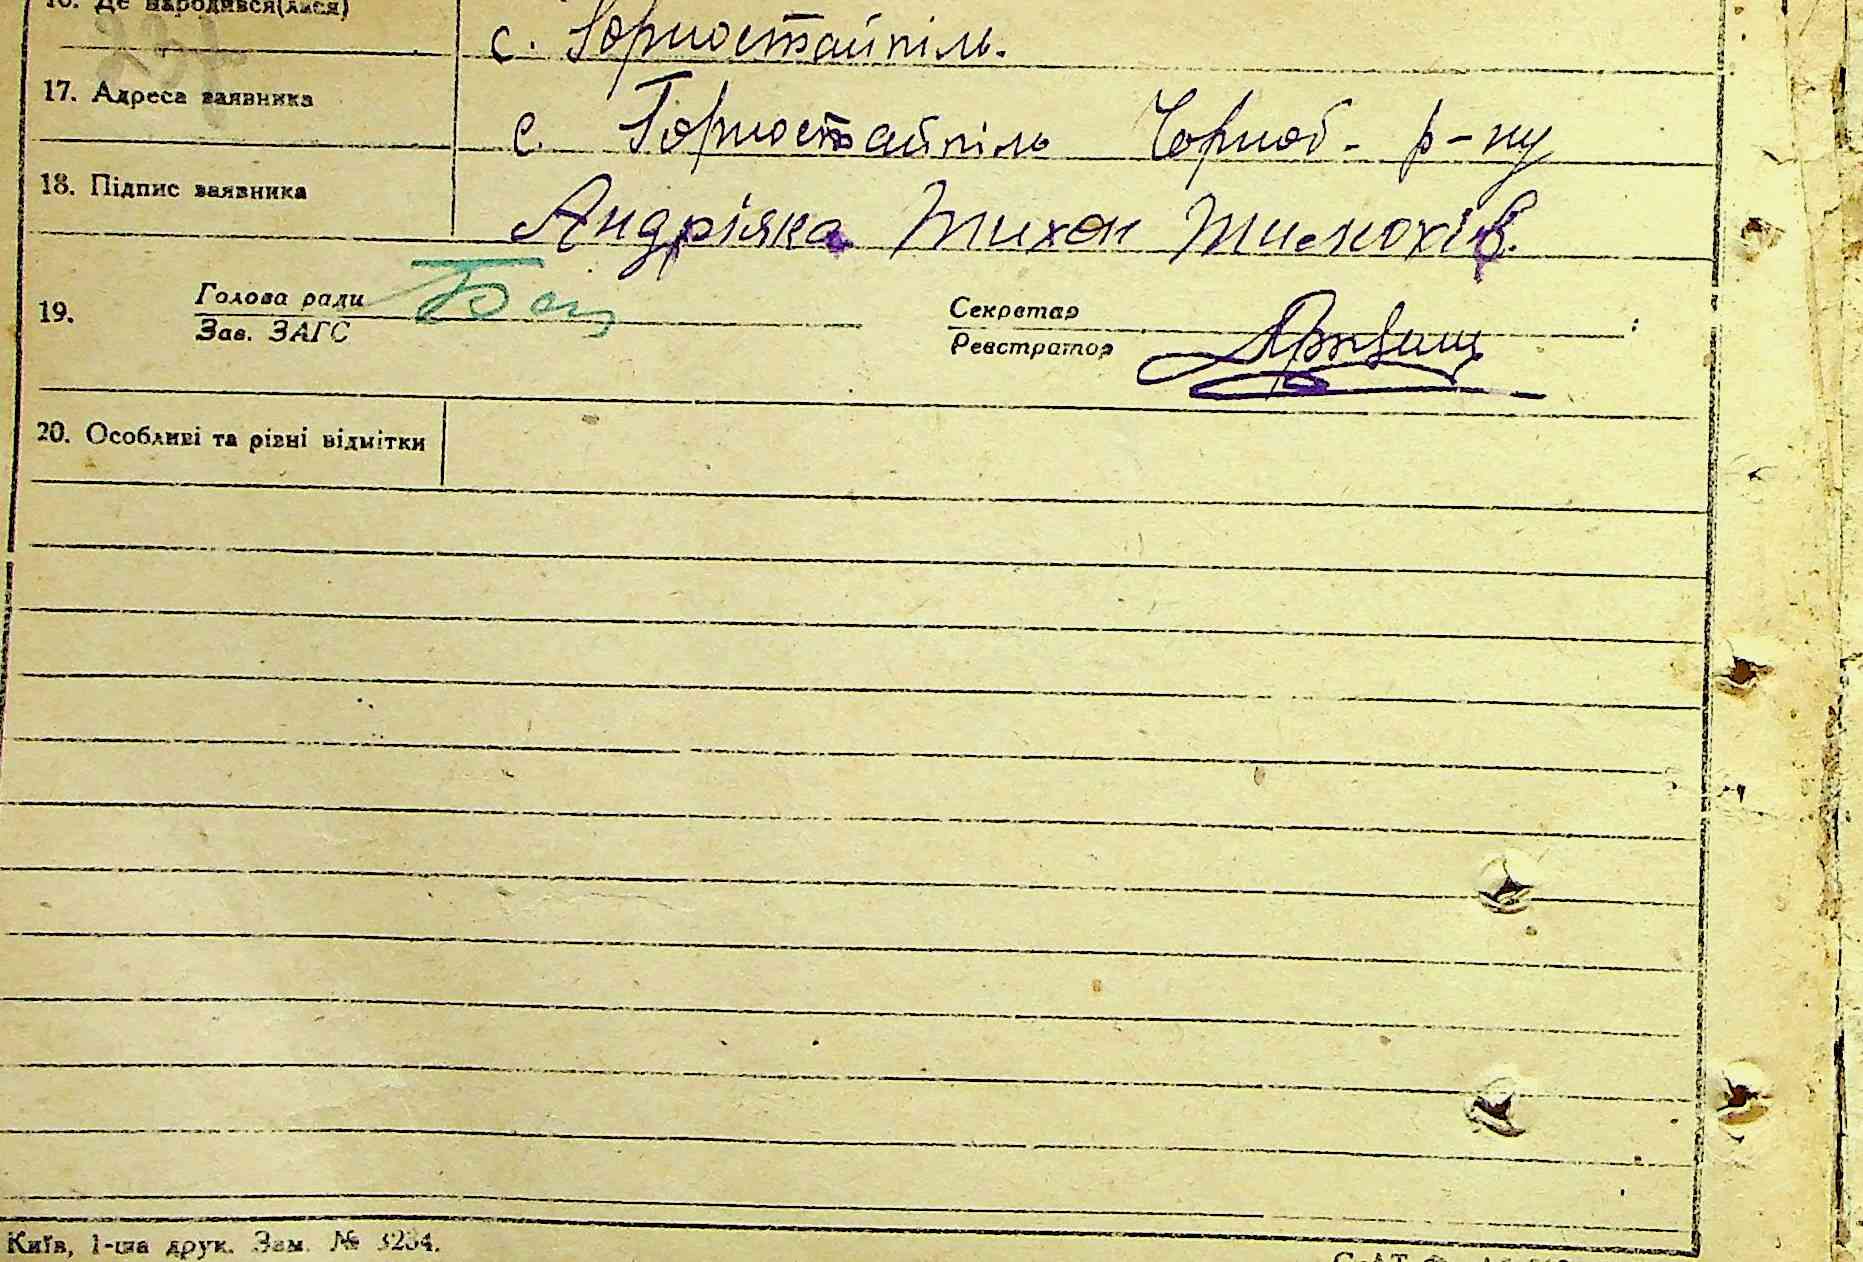 16. Де народився(лася) с. Горностайпіль.
17. Адреса заявника с. Горностайпіль Чорноб. р-ну
18. Підпис заявника Андріяка Тихон Тимохів.
19. Голова ради Секретар
Зав. ЗАГС Реєстратор
20. Особливі та різні відмітки
Київ, 1-ша друк. Зам. № 3234.